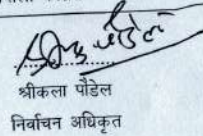 श्रीकला पौडेल
निर्वाचन अधिकृत